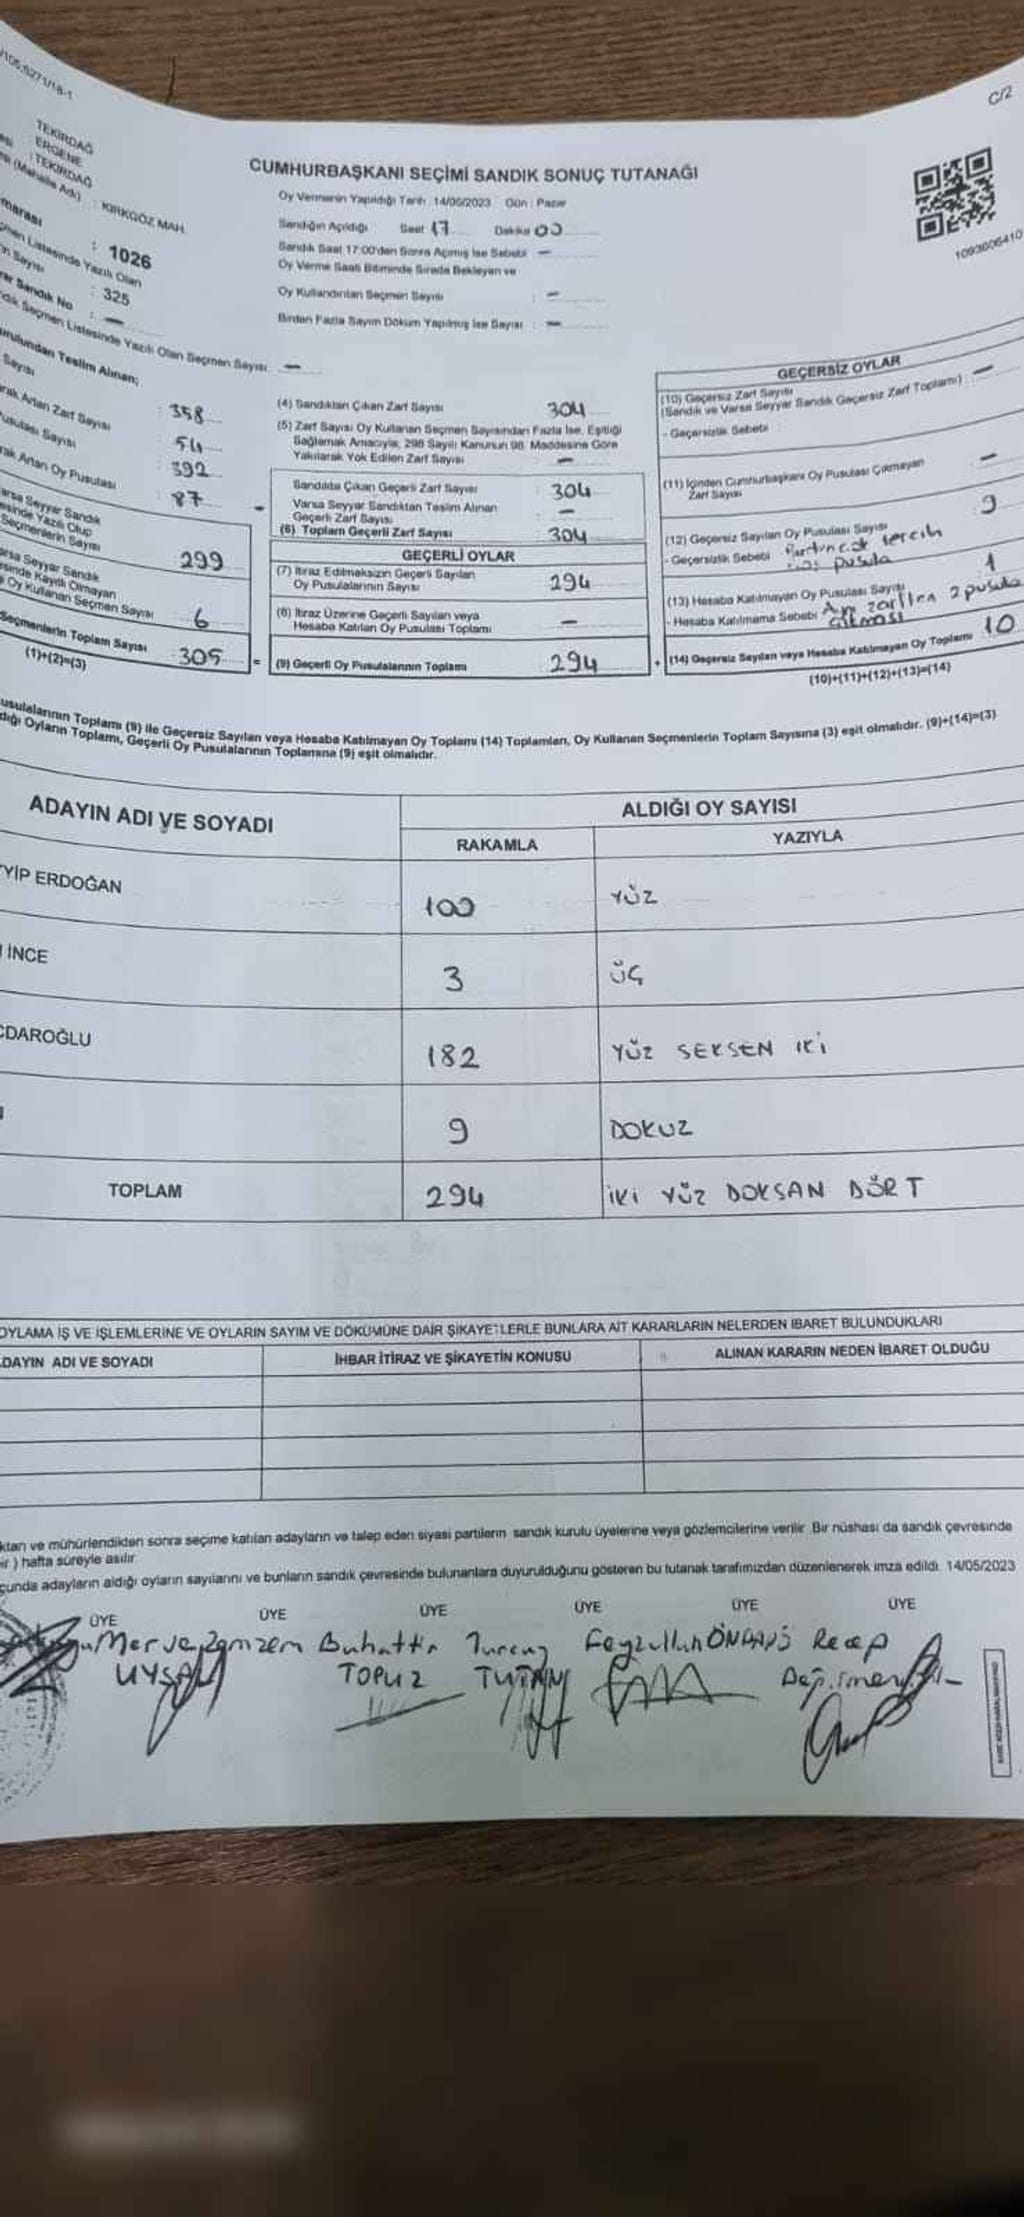 /105:6271/18-1
C/2
TEKİRDAĞ
ERGENE
: TEKİRDAĞ
(Mahalle Adı) : KIRKGÖZ MAH.
CUMHURBAŞKANI SEÇİMİ SANDIK SONUÇ TUTANAĞI
Oy Vermenin Yapıldığı Tarih : 14/05/2023 Gün : Pazar
Sandığın Açıldığı Saat 17 Dakika 00
Sandık Saat 17:00'den Sonra Açılmış İse Sebebi —
Oy Verme Saati Bitiminde Sırada Bekleyen ve
Oy Kullandırılan Seçmen Sayısı : —
Birden Fazla Sayım Döküm Yapılmış İse Sayısı : —
1093606410
marası : 1026
men Listesinde Yazılı Olan
n Sayısı : 325
ar Sandık No : —
dık Seçmen Listesinde Yazılı Olan Seçmen Sayısı —
urulundan Teslim Alınan;
Sayısı : 358
rak Artan Zarf Sayısı : 54
usulası Sayısı : 392
rak Artan Oy Pusulası : 87
arsa Seyyar Sandık
esinde Yazılı Olup
Seçmenlerin Sayısı 299
arsa Seyyar Sandık
esinde Kayıtlı Olmayan
Oy Kullanan Seçmen Sayısı 6
Seçmenlerin Toplam Sayısı 305
(1)+(2)=(3)
(4) Sandıktan Çıkan Zarf Sayısı : 304
(5) Zarf Sayısı Oy Kullanan Seçmen Sayısından Fazla İse, Eşitliği
Sağlamak Amacıyla, 298 Sayılı Kanunun 98. Maddesine Göre
Yakılarak Yok Edilen Zarf Sayısı : —
Sandıkta Çıkan Geçerli Zarf Sayısı : 304
Varsa Seyyar Sandıktan Teslim Alınan
Geçerli Zarf Sayısı : —
(6) Toplam Geçerli Zarf Sayısı : 304
GEÇERLİ OYLAR
(7) İtiraz Edilmeksizin Geçerli Sayılan
Oy Pusulalarının Sayısı : 294
(8) İtiraz Üzerine Geçerli Sayılan veya
Hesaba Katılan Oy Pusulası Toplamı : —
= (9) Geçerli Oy Pusulalarının Toplamı : 294
GEÇERSİZ OYLAR
(10) Geçersiz Zarf Sayısı
(Sandık ve Varsa Seyyar Sandık Geçersiz Zarf Toplamı) : —
- Geçersizlik Sebebi :
(11) İçinden Cumhurbaşkanı Oy Pusulası Çıkmayan
Zarf Sayısı —
(12) Geçersiz Sayılan Oy Pusulası Sayısı 9
- Geçersizlik Sebebi tercih
pusula
(13) Hesaba Katılmayan Oy Pusulası Sayısı 1
- Hesaba Katılmama Sebebi Aynı zarftan 2 pusula
çıkması
+ (14) Geçersiz Sayılan veya Hesaba Katılmayan Oy Toplamı 10
(10)+(11)+(12)+(13)=(14)
usulalarının Toplamı (9) ile Geçersiz Sayılan veya Hesaba Katılmayan Oy Toplamı (14) Toplamları, Oy Kullanan Seçmenlerin Toplam Sayısına (3) eşit olmalıdır. (9)+(14)=(3)
dığı Oyların Toplamı, Geçerli Oy Pusulalarının Toplamına (9) eşit olmalıdır.
ADAYIN ADI VE SOYADI ALDIĞI OY SAYISI
RAKAMLA YAZIYLA
YİP ERDOĞAN 100 YÜZ
İNCE 3 ÜÇ
CDAROĞLU 182 YÜZ SEKSEN İKİ
9 DOKUZ
TOPLAM 294 İKİ YÜZ DOKSAN DÖRT
OYLAMA İŞ VE İŞLEMLERİNE VE OYLARIN SAYIM VE DÖKÜMÜNE DAİR ŞİKAYETLERLE BUNLARA AİT KARARLARIN NELERDEN İBARET BULUNDUKLARI
DAYIN ADI VE SOYADI İHBAR İTİRAZ VE ŞİKAYETİN KONUSU ALINAN KARARIN NEDEN İBARET OLDUĞU
ktan ve mühürlendikten sonra seçime katılan adayların ve talep eden siyasi partilerin sandık kurulu üyelerine veya gözlemcilerine verilir. Bir nüshası da sandık çevresinde
ir ) hafta süreyle asılır.
çunda adayların aldığı oyların sayılarını ve bunların sandık çevresinde bulunanlara duyurulduğunu gösteren bu tutanak tarafımızdan düzenlenerek imza edildi. 14/05/2023
ÜYE ÜYE ÜYE ÜYE ÜYE ÜYE
Merve Gamzem Buhattin Turcay Feyzullah ÖNDAŞ Recep
UYSAL TOPUZ Değirmen